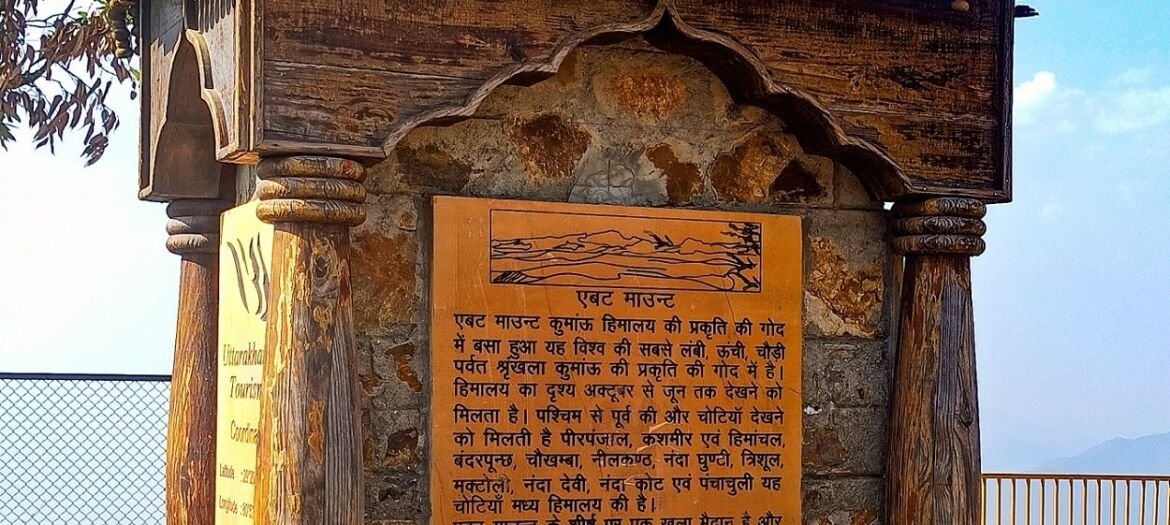 एबट माउन्ट
एबट माउन्ट कुमांऊ हिमालय की प्रकृति की गोद
में बसा हुआ यह विश्व की सबसे लंबी, ऊंची, चौड़ी
पर्वत श्रृंखला कुमांऊ की प्रकृति की गोद में है।
हिमालय का दृश्य अक्टूबर से जून तक देखने को
मिलता है। पश्चिम से पूर्व की और चोटियाँ देखने
को मिलती है पीरपंजाल, कशमीर एवं हिमांचल,
बंदरपून्छ, चौखम्बा, नीलकण्ठ, नंदा घुण्टी, त्रिशूल,
मक्टोली, नंदा देवी, नंदा कोट एवं पंचाचुली यह
चोटियाँ मध्य हिमालय की है।
एबट माउन्ट के शीर्ष पर एक खुला मैदान है और